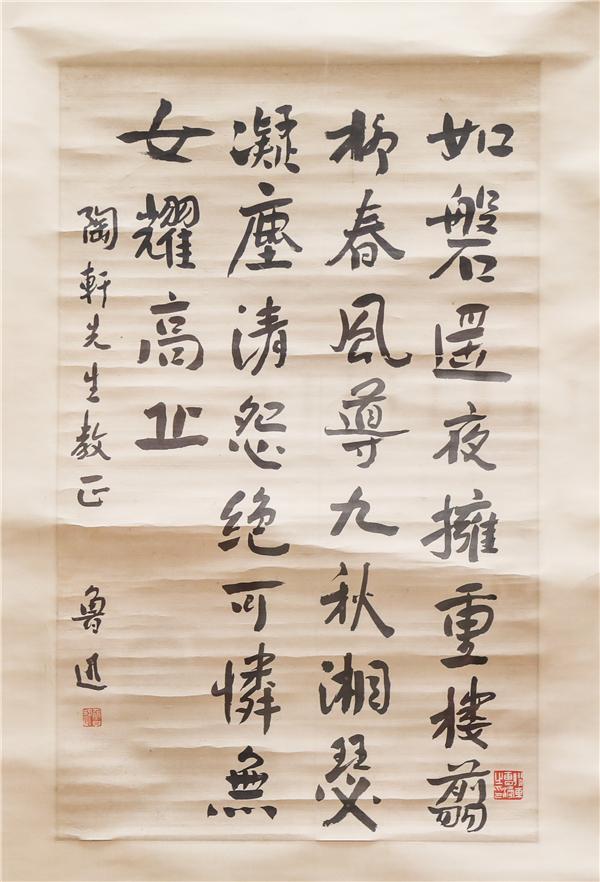 如磐遙夜擁重樓翦
柳春風導九秋湘瑟
凝塵清怨絕可憐無
女耀高丘
陶軒先生教正
魯迅